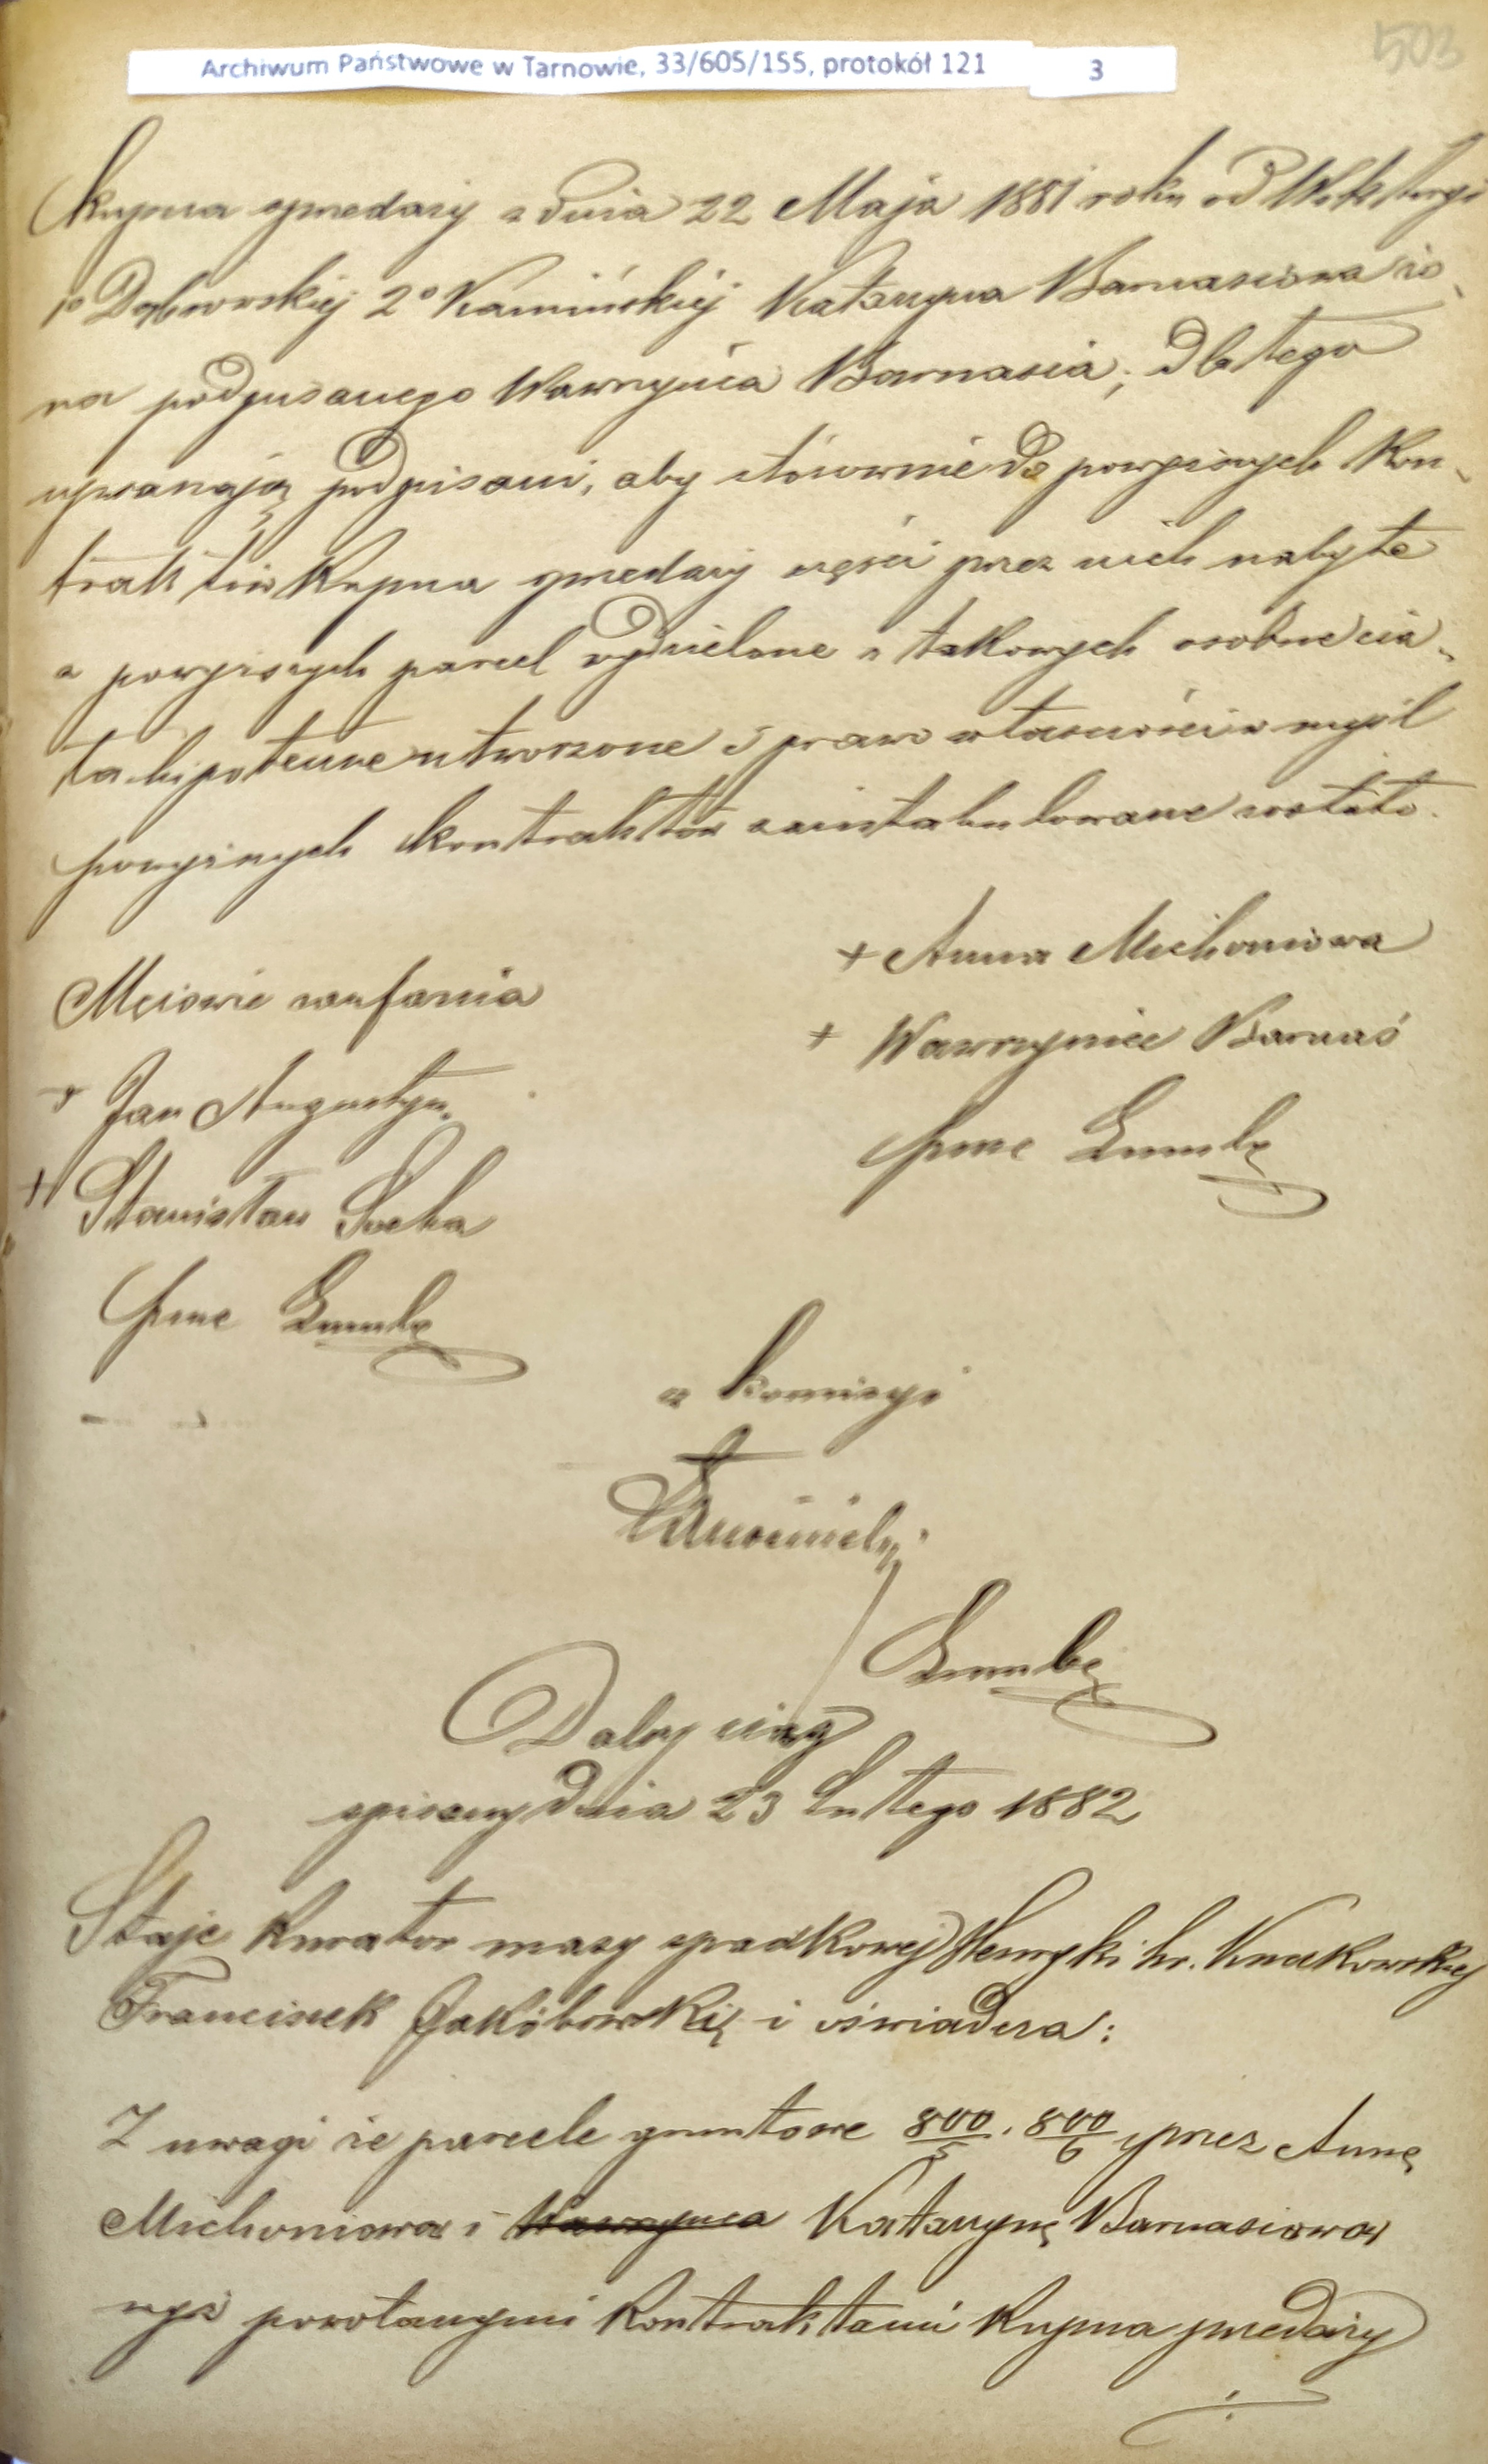 503
Archiwum Państwowe w Tarnowie, 33/605/155, protokół 121 3
kupna sprzedaży z dnia 22 Maja 1881 roku od Wiktoryi
1º Dąbrowskiej 2º Kamińskiej Katarzyna Barnasiowa żo-
na podpisanego Wawrzyńca Barnasia; dlatego
upraszają podpisani, aby stósownie do powyższych kon-
traktów kupna sprzedaży części przez nich nabyte
z powyższych parcel wydzielone z takowych osobne cia-
ła hipoteczne utworzone i prawo własności w myśl
powyższych kontraktów zaintabulowane zostało.
Mężowie zaufania
+ Anna Michoniowa
+ Wawrzyniec Barnaś
+ Jan Augustyn
+ Stanisław Socha
z komisyi
Dalszy ciąg
spisany dnia 23 Lutego 1882
Staje kurator masy spadkowej Henryki hr. Kuczkowskiej
Franciszek Jakóbowski i oświadcza:
Z uwagi że parcele gruntowe 800/5, 800/6 przez Annę
Michoniowa i Wawrzyńca Katarzynę Barnasiową
wyż powołanymi kontraktami kupna sprzedaży